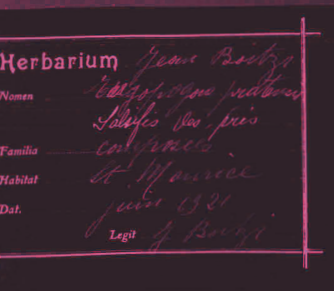 Herbarium Jean Boitzi
Nomen Tragopogons pratense
Salsifis des prés
Familia composées
Habitat St Maurice
Dat. juin 1921
Legit J Boitzi